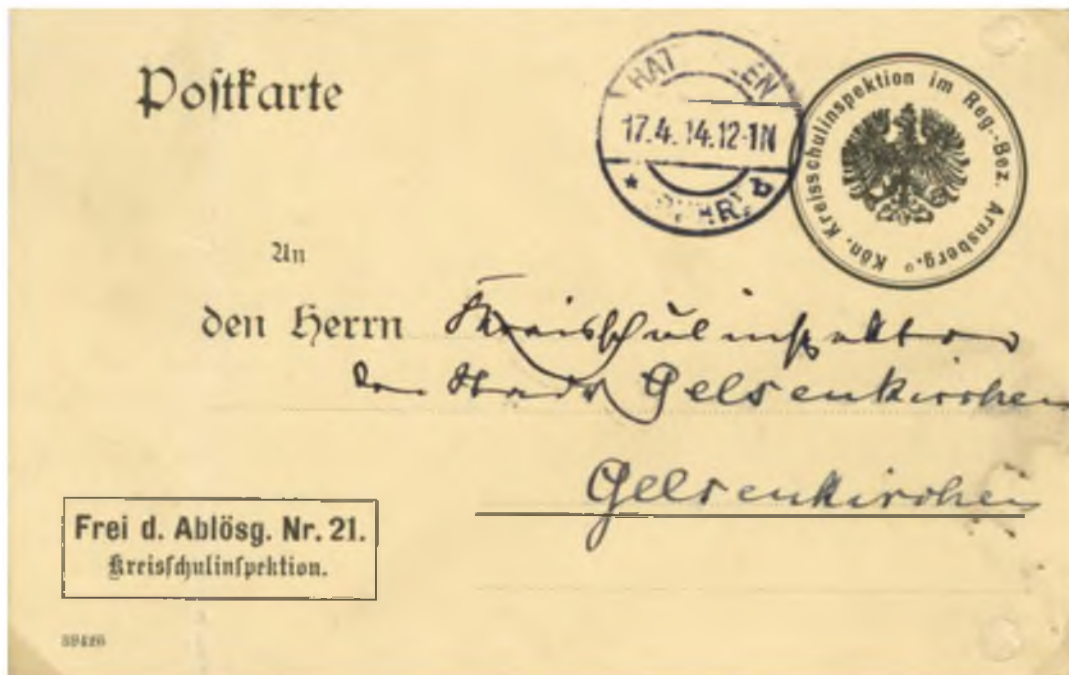 Postkarte
HAT EN
17.4.14.12-1N
* (RUHR) b
Kön. Kreisschulinspektion im Reg.-Bez. Arnsberg.
An
den Herrn Kreisschulinspektor
der Stadt Gelsenkirchen
Gelsenkirchen
Frei d. Ablösg. Nr. 21.
Kreisschulinspektion.